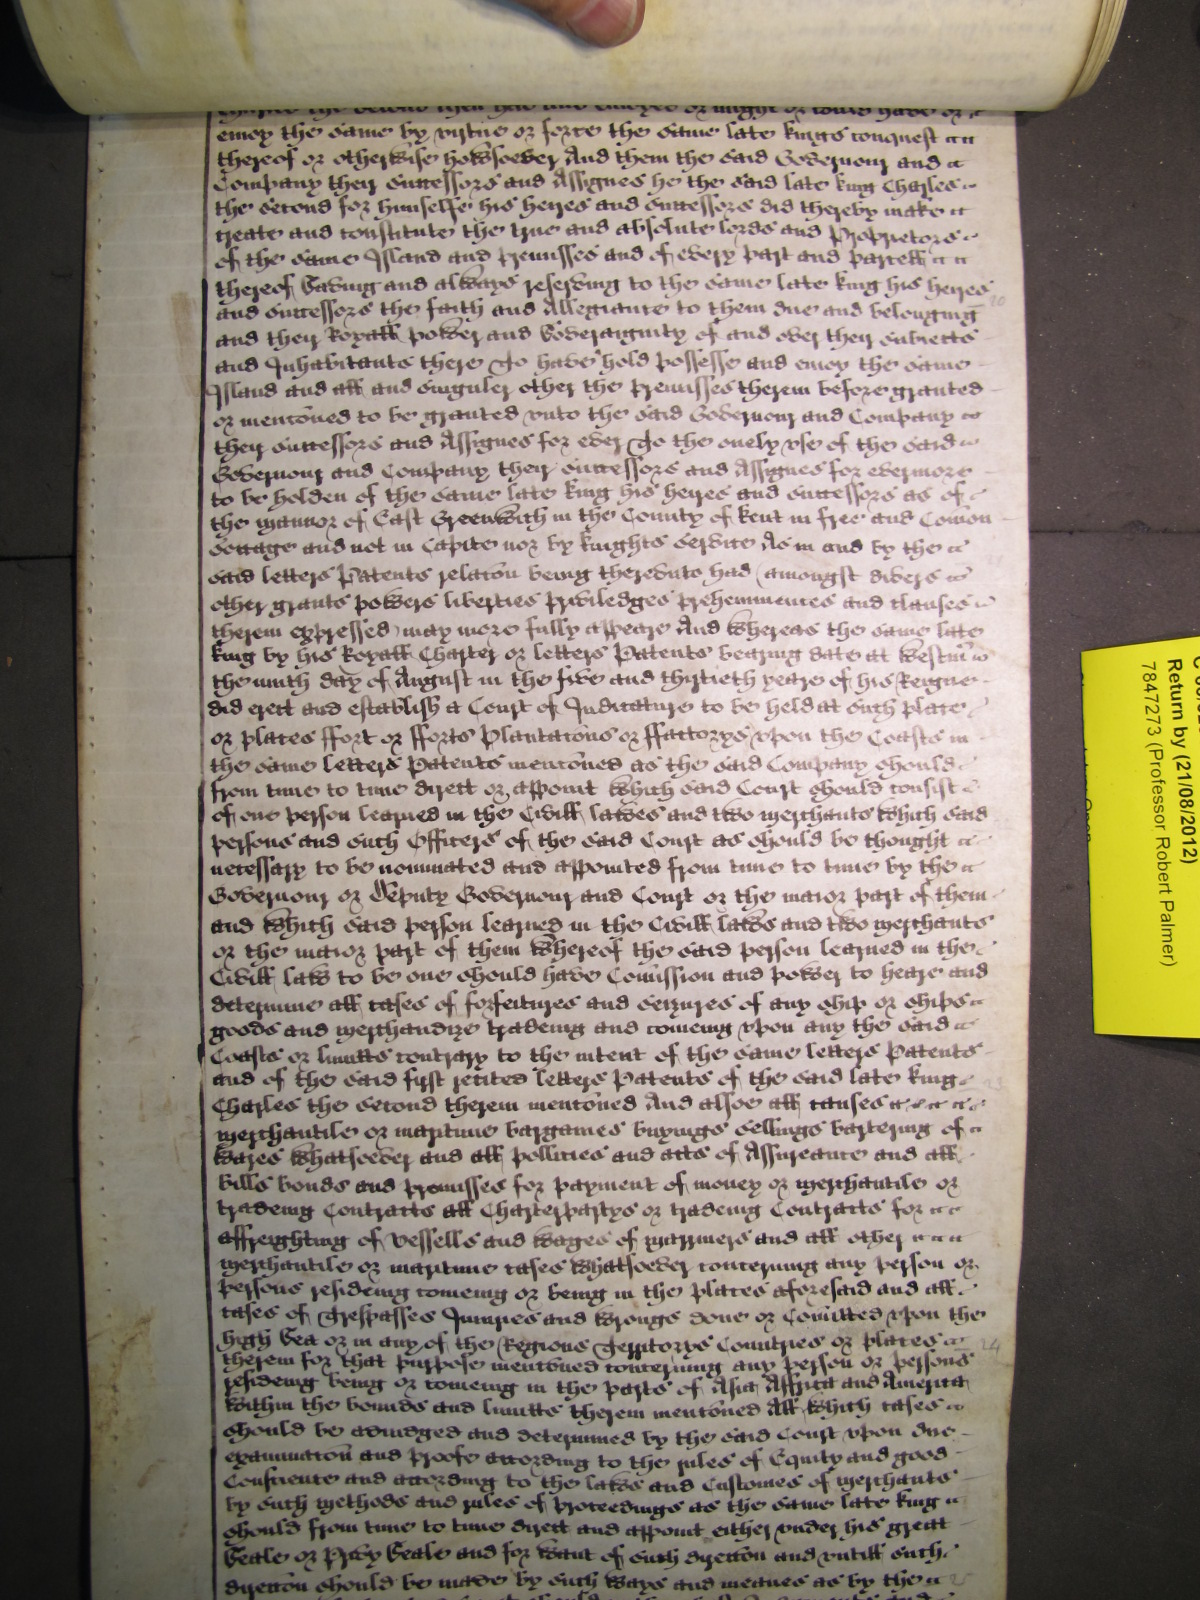 Charles the Second then had and enioyed or might or could have or
enioy the same by vertue or force the same late kings conquest
thereof or otherwise howsoever And them the said Governour and
Company their Successors and Assignes he the said late king Charles
the Second for himselfe his heires and Successors did thereby make
create and constitute the true and absolute lords and Proprietors
of the same Island and premisses and of every part and parcell
thereof Saving and always reserving to the same late king his heires
and Successors the faith and Allegiance to them due and belonging
and their Royall power and Soveraignity of and over their subiects
and Inhabitants there To have hold possesse and enioy the same
Island and all and singuler other the premisses therein before granted
or menconed to be granted vnto the said Governour and Company
their Successors and Assignes for ever To the onely vse of the said
Governour and Company their Successors and Assignes for evermore
to be holden of the same late king his heires and Successors as of
the mannor of East Greenwich in the County of Kent in free and Comon
Soccage and not in Capite nor by knights service As in and by the
said letters Patents relacon being therevnto had (amongst divers
other grants powers liberties priviledges preheminences and clauses
therein expressed) may more fully appeare And whereas the same late
king by his Royall Charter or letters Patents bearing date at Westm
the ninth day of August in the five and thirtieth yeare of his Reigne
did erect and establish a Court of Judicature to be held at such place
or places ffort or fforts Plantacons or ffactorys vpon the Coasts in
the same letters Patents menconed as the said Company should
from time to time direct or appoint which said Court should consist
of one person learned in the Civill lawes and two merchants which said
persons and such Officers of the said Court as should be thought
necessary to be nominated and appointed from time to time by the
Governour or Deputy Governour and Court or the maior part of them
and which said person learned in the Civill laws and two merchants
or the maior part of them whereof the said person learned in the
Civill law to be one should have Comission and power to heare and
determine all cases of forfeitures and seizures of any ship or ships
goods and merchandize tradeing and comeing vpon any the said
Coasts or limitts contrary to the intent of the same letters Patents
and of the said first recited letters Patents of the said late king
Charles the Second therein menconed And alsoe all causes
merchantile or maritime bargaines buyings sellings bartering of
wares whatsoever and all pollicies and acts of Assureance and all
bills bonds and promisses for payment of money or merchantile or
tradeing Contracts all Charterpartys or tradeing Contracts for
affreighting of vessells and wages of marriners and all other
merchantile or maritime cases whatsoever concerning any person or
persons resideing comeing or being in the places aforesaid and all
cases of Trespasses Iniuries and wrongs done or Comitted vpon the
high Sea or in any of the Regions Territorys Countries or places
therein for that purpose menconed concerning any person or persons
resideing being or comeing in the parts of Asia Affrica and America
within the bounds and limitts therein menconed All which cases
should be adiudged and determined by the said Court vpon due
examinacon and proofe according to the rules of Equity and good
Conscience and according to the laws and Customes of merchants
by such methods and rules of proceedings as the same late king
should from time to time direct and appoint either vnder his great
Seale or Privy Seale and for want of such direccon and vntill such
direccon should be made by such ways and meanes as by the
Return by (21/08/2012)
7847273 (Professor Robert Palmer)